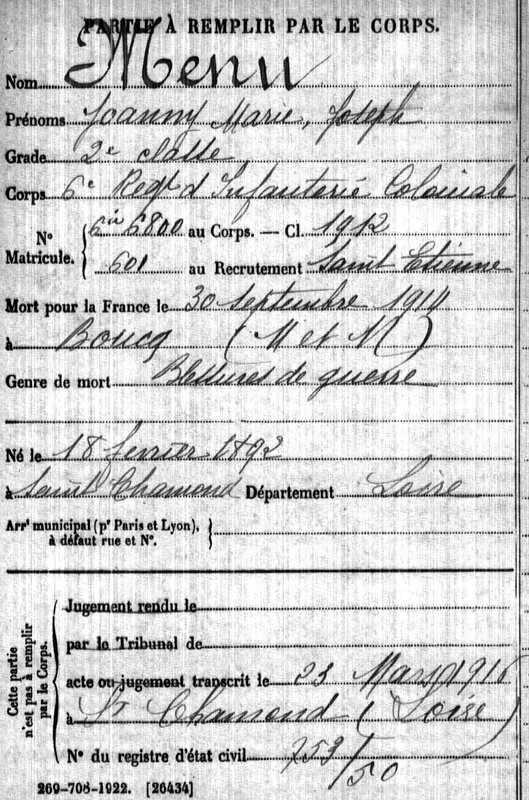 PARTIE À REMPLIR PAR LE CORPS.
Nom Menu
Prénoms Joanny Marie, Joseph
Grade 2e classe
Corps 6e Regt d'Infanterie Coloniale
N° Matricule. 6800 au Corps. — Cl. 1912
601 au Recrutement Saint Etienne
Mort pour la France le 30 Septembre 1914
à Boucq (M et M)
Genre de mort Blessures de guerre
Né le 18 fevrier 1892
à Saint Chamond Département Loire
Arrt municipal (pr Paris et Lyon),
à défaut rue et N°.
Cette partie n'est pas à remplir par le Corps.
Jugement rendu le
par le Tribunal de
acte ou jugement transcrit le 23 Mars 1916
à St Chamond (Loire)
N° du registre d'état civil 759/50
269-708-1922. [26434]